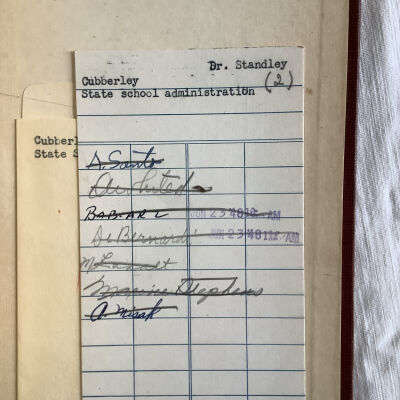 Dr. Standley
Cubberley
State school administration (2)
Cubberl
State S
A. Santo
BABARL JUN 23 48 10 AM
De Bernardi JUN 23 48 11 AM
Maurice Stephens
A. Misak